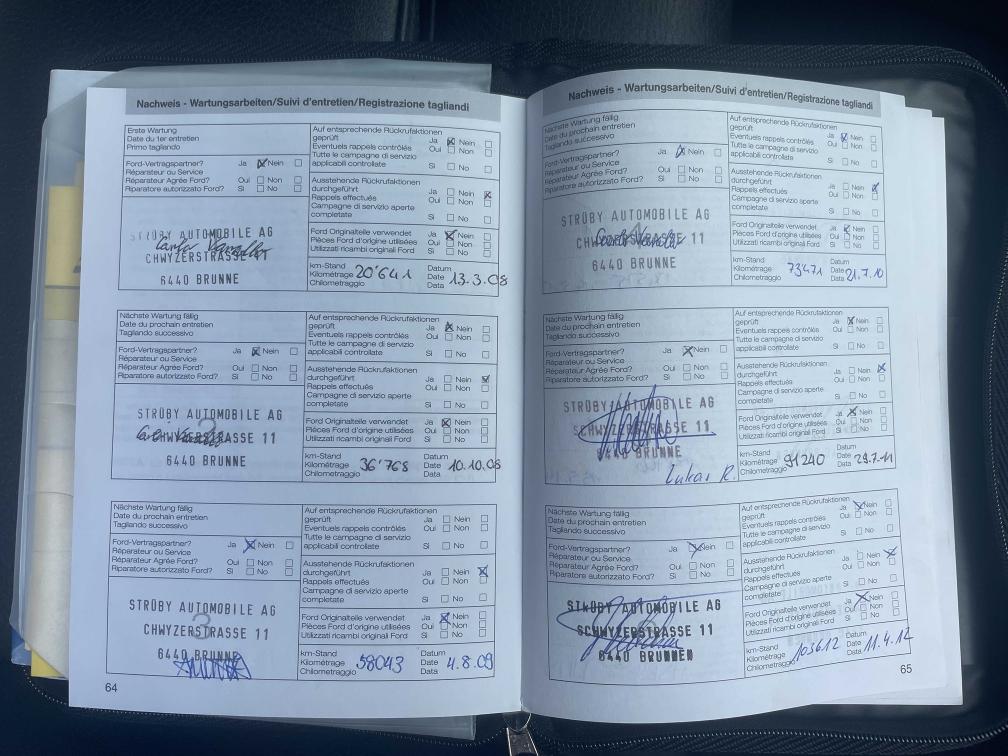 Nachweis - Wartungsarbeiten/Suivi d'entretien/Registrazione tagliandi
Erste Wartung
Date du 1er entretien
Primo tagliando
Ford-Vertragspartner? Ja Nein
Réparateur ou Service
Réparateur Agrée Ford? Oui Non
Riparatore autorizzato Ford? Si No
STRÜBY AUTOMOBILE AG
CHWYZERSTRASSE 11
6440 BRUNNE
Auf entsprechende Rückrufaktionen
geprüft Ja Nein
Eventuels rappels contrôlés Oui Non
Tutte le campagne di servizio
applicabili controllate Si No
Ausstehende Rückrufaktionen
durchgeführt Ja Nein
Rappels effectués Oui Non
Campagne di servizio aperte
completate Si No
Ford Originalteile verwendet Ja Nein
Pièces Ford d'origine utilisées Oui Non
Utilizzati ricambi originali Ford Si No
km-Stand Datum
Kilométrage 20'641 Date 13.3.08
Chilometraggio Data
Nächste Wartung fällig
Date du prochain entretien
Tagliando successivo
Ford-Vertragspartner? Ja Nein
Réparateur ou Service
Réparateur Agrée Ford? Oui Non
Riparatore autorizzato Ford? Si No
STRÜBY AUTOMOBILE AG
CHWYZERSTRASSE 11
6440 BRUNNE
Auf entsprechende Rückrufaktionen
geprüft Ja Nein
Eventuels rappels contrôlés Oui Non
Tutte le campagne di servizio
applicabili controllate Si No
Ausstehende Rückrufaktionen
durchgeführt Ja Nein
Rappels effectués Oui Non
Campagne di servizio aperte
completate Si No
Ford Originalteile verwendet Ja Nein
Pièces Ford d'origine utilisées Oui Non
Utilizzati ricambi originali Ford Si No
km-Stand Datum
Kilométrage 36'768 Date 10.10.08
Chilometraggio Data
Nächste Wartung fällig
Date du prochain entretien
Tagliando successivo
Ford-Vertragspartner? Ja Nein
Réparateur ou Service
Réparateur Agrée Ford? Oui Non
Riparatore autorizzato Ford? Si No
STRÜBY AUTOMOBILE AG
CHWYZERSTRASSE 11
6440 BRUNNE
Auf entsprechende Rückrufaktionen
geprüft Ja Nein
Eventuels rappels contrôlés Oui Non
Tutte le campagne di servizio
applicabili controllate Si No
Ausstehende Rückrufaktionen
durchgeführt Ja Nein
Rappels effectués Oui Non
Campagne di servizio aperte
completate Si No
Ford Originalteile verwendet Ja Nein
Pièces Ford d'origine utilisées Oui Non
Utilizzati ricambi originali Ford Si No
km-Stand Datum
Kilométrage 58043 Date 4.8.09
Chilometraggio Data
64
Nachweis - Wartungsarbeiten/Suivi d'entretien/Registrazione tagliandi
Nächste Wartung fällig
Date du prochain entretien
Tagliando successivo
Ford-Vertragspartner? Ja Nein
Réparateur ou Service
Réparateur Agrée Ford? Oui Non
Riparatore autorizzato Ford? Si No
STRÜBY AUTOMOBILE AG
CHWYZERSTRASSE 11
6440 BRUNNE
Auf entsprechende Rückrufaktionen
geprüft Ja Nein
Eventuels rappels contrôlés Oui Non
Tutte le campagne di servizio
applicabili controllate Si No
Ausstehende Rückrufaktionen
durchgeführt Ja Nein
Rappels effectués Oui Non
Campagne di servizio aperte
completate Si No
Ford Originalteile verwendet Ja Nein
Pièces Ford d'origine utilisées Oui Non
Utilizzati ricambi originali Ford Si No
km-Stand Datum
Kilométrage 73471 Date 21.7.10
Chilometraggio Data
Nächste Wartung fällig
Date du prochain entretien
Tagliando successivo
Ford-Vertragspartner? Ja Nein
Réparateur ou Service
Réparateur Agrée Ford? Oui Non
Riparatore autorizzato Ford? Si No
STRÜBY AUTOMOBILE AG
SCHWYZERSTRASSE 11
6440 BRUNNE
Lukas R.
Auf entsprechende Rückrufaktionen
geprüft Ja Nein
Eventuels rappels contrôlés Oui Non
Tutte le campagne di servizio
applicabili controllate Si No
Ausstehende Rückrufaktionen
durchgeführt Ja Nein
Rappels effectués Oui Non
Campagne di servizio aperte
completate Si No
Ford Originalteile verwendet Ja Nein
Pièces Ford d'origine utilisées Oui Non
Utilizzati ricambi originali Ford Si No
km-Stand Datum
Kilométrage 91240 Date 29.7.11
Chilometraggio Data
Nächste Wartung fällig
Date du prochain entretien
Tagliando successivo
Ford-Vertragspartner? Ja Nein
Réparateur ou Service
Réparateur Agrée Ford? Oui Non
Riparatore autorizzato Ford? Si No
STRÜBY AUTOMOBILE AG
SCHWYZERSTRASSE 11
6440 BRUNNEN
Auf entsprechende Rückrufaktionen
geprüft Ja Nein
Eventuels rappels contrôlés Oui Non
Tutte le campagne di servizio
applicabili controllate Si No
Ausstehende Rückrufaktionen
durchgeführt Ja Nein
Rappels effectués Oui Non
Campagne di servizio aperte
completate Si No
Ford Originalteile verwendet Ja Nein
Pièces Ford d'origine utilisées Oui Non
Utilizzati ricambi originali Ford Si No
km-Stand Datum
Kilométrage 103612 Date 11.4.12
Chilometraggio Data
65